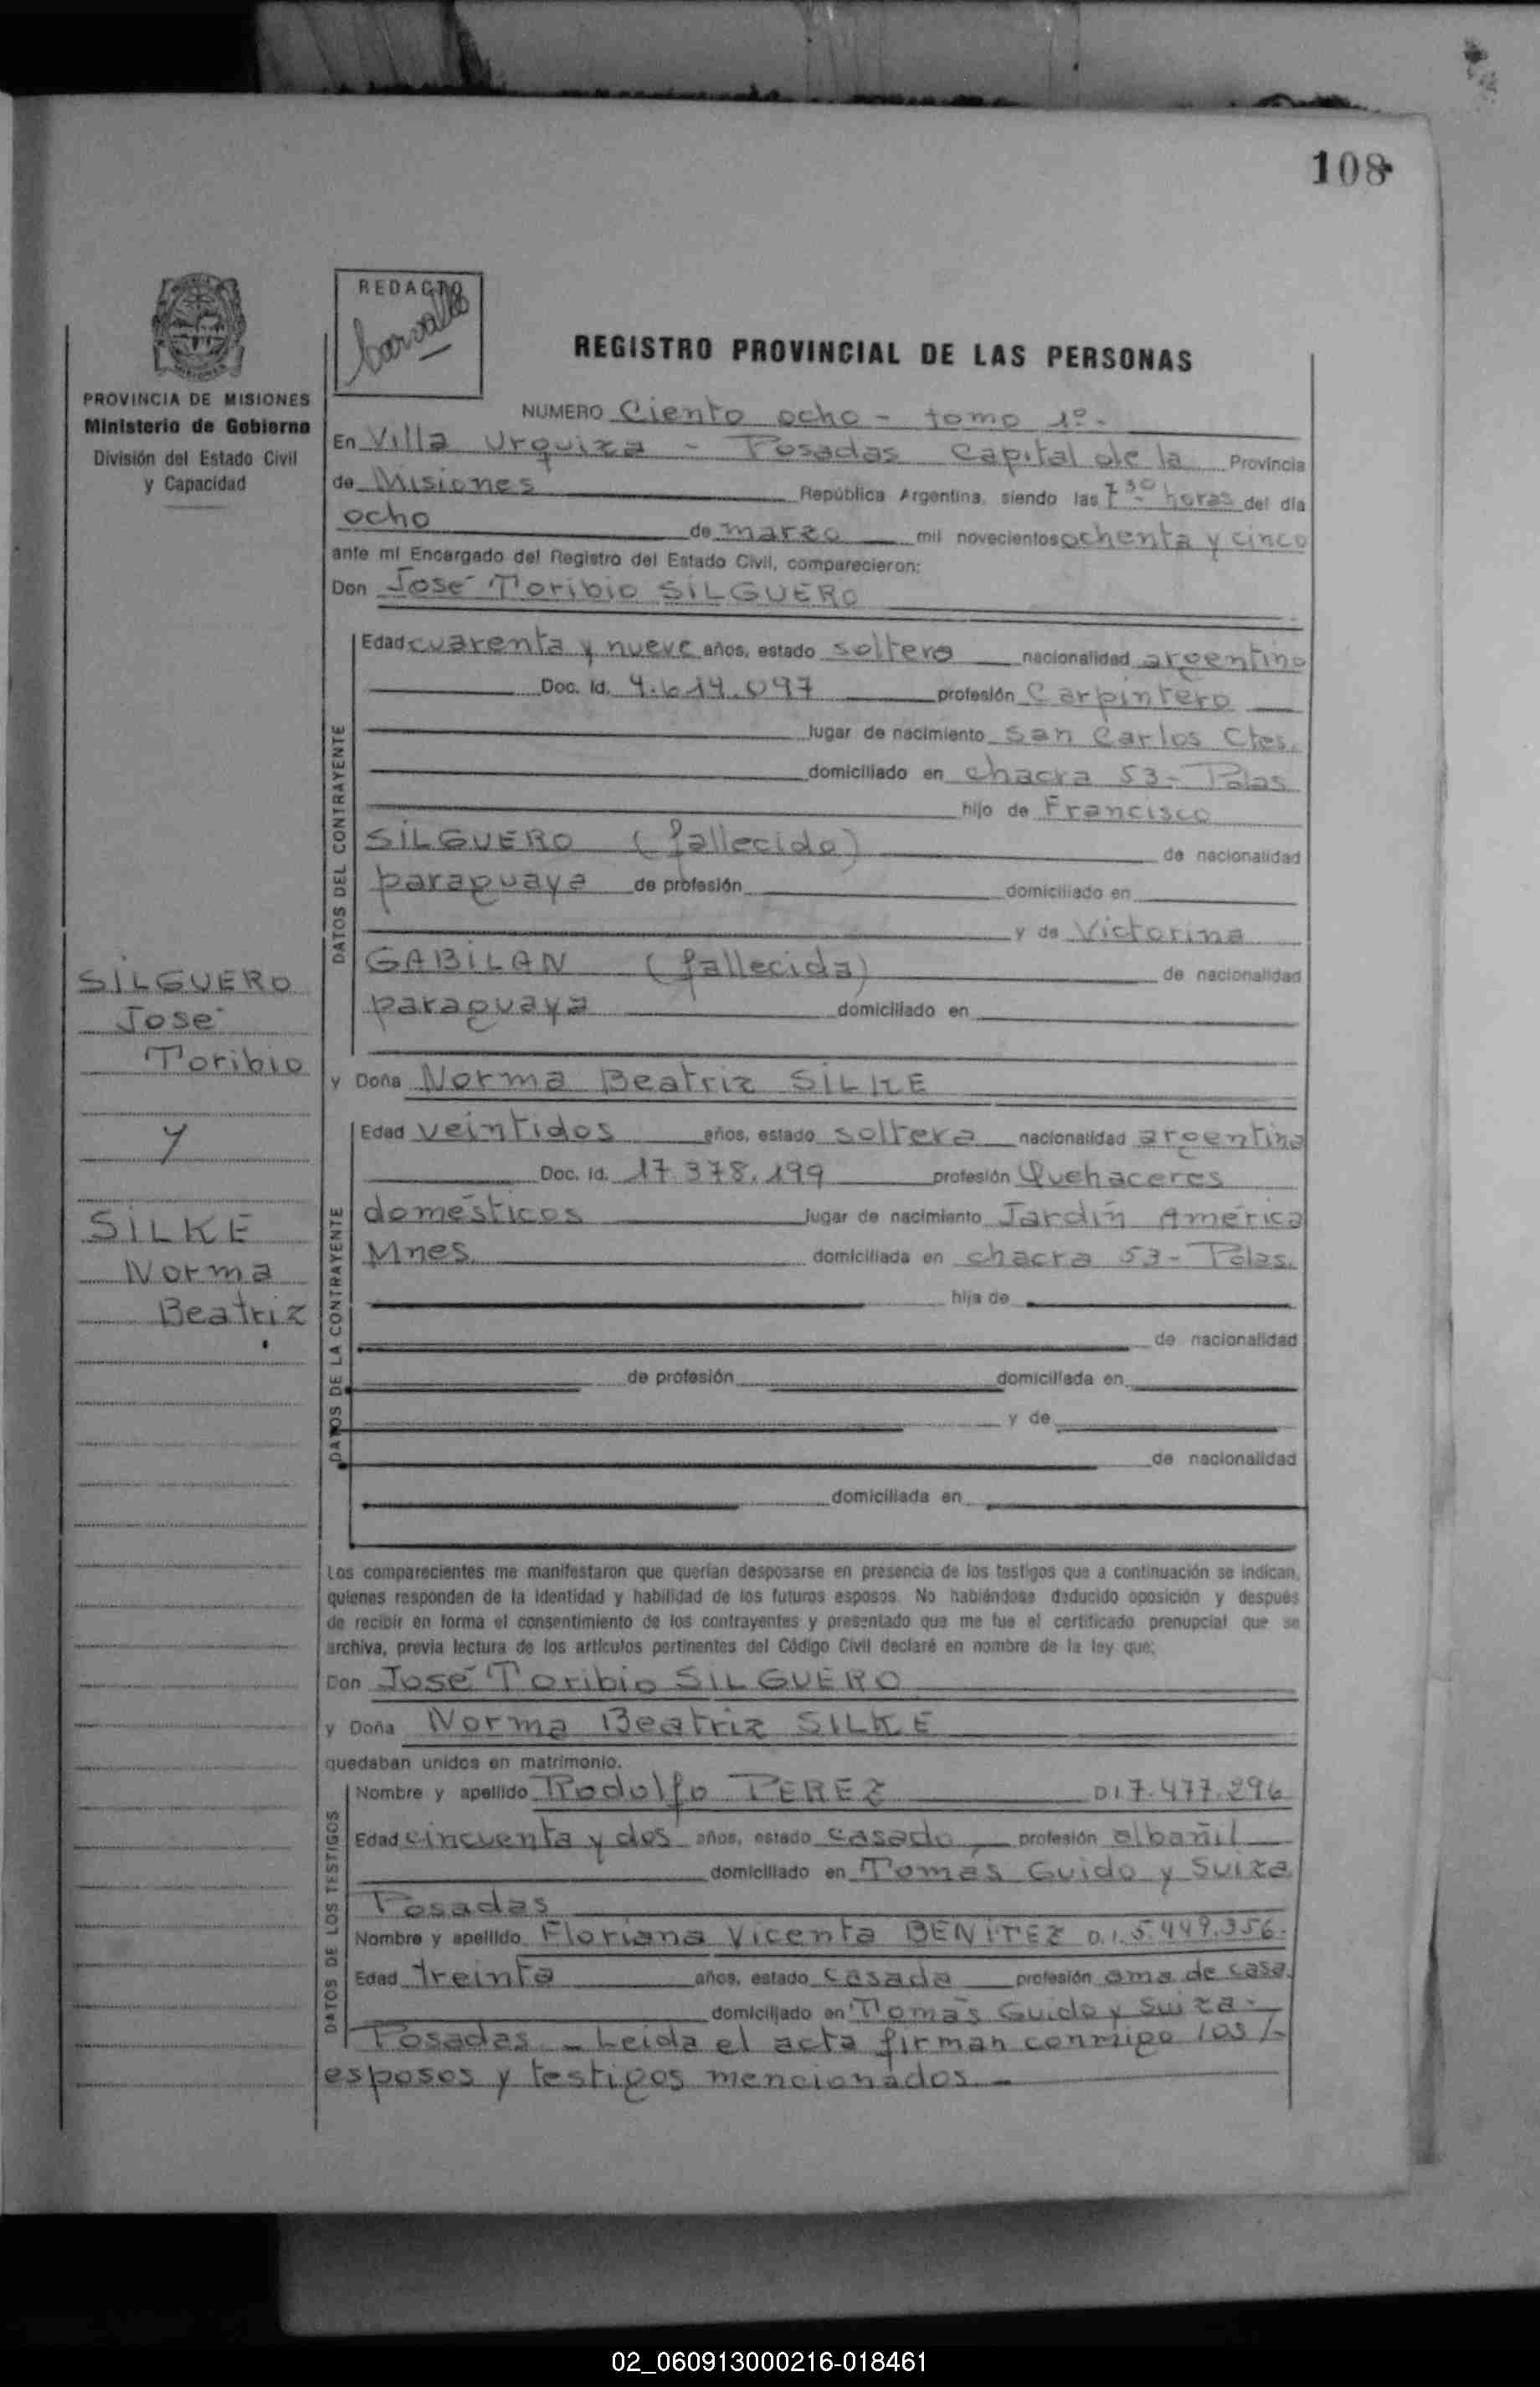 108
REDACTO
PROVINCIA DE MISIONES
Ministerio de Gobierno
División del Estado Civil
y Capacidad
REGISTRO PROVINCIAL DE LAS PERSONAS
NUMERO Ciento ocho - tomo 1º.-
En Villa Urquiza - Posadas Capital de la Provincia
de Misiones República Argentina, siendo las 7 30 horas del día
ocho de marzo mil novecientos ochenta y cinco
ante mi Encargado del Registro del Estado Civil, comparecieron:
Don José Toribio SILGUERO
DATOS DEL CONTRAYENTE
Edad cuarenta y nueve años, estado soltero nacionalidad argentino
Doc. Id. 4.614.097 profesión Carpintero
lugar de nacimiento San Carlos Ctes.
domiciliado en chacra 53- Pdas
hijo de Francisco
SILGUERO (fallecido) de nacionalidad
paraguaya de profesión domiciliado en
y de Victorina
GABILAN (fallecida) de nacionalidad
paraguaya domiciliado en
SILGUERO
José
Toribio
y
SILKE
Norma
Beatriz
y Doña Norma Beatriz SILKE
DATOS DE LA CONTRAYENTE
Edad veintidos años, estado soltera nacionalidad argentina
Doc. Id. 17.378.199 profesión Quehaceres
domésticos lugar de nacimiento Jardín América
Mnes. domiciliada en chacra 53- Pdas.
hija de
de nacionalidad
de profesión domiciliada en
y de
de nacionalidad
domiciliada en
Los comparecientes me manifestaron que querían desposarse en presencia de los testigos que a continuación se indican,
quienes responden de la identidad y habilidad de los futuros esposos. No habiéndose deducido oposición y después
de recibir en forma el consentimiento de los contrayentes y presentado que me fue el certificado prenupcial que se
archiva, previa lectura de los artículos pertinentes del Código Civil declaré en nombre de la ley que:
Don José Toribio SILGUERO
y Doña Norma Beatriz SILKE
quedaban unidos en matrimonio.
DATOS DE LOS TESTIGOS
Nombre y apellido Rodolfo PEREZ DI 7.477.296
Edad cincuenta y dos años, estado casado profesión albañil
domiciliado en Tomás Guido y Suiza
Posadas
Nombre y apellido Floriana Vicenta BENITEZ D.I. 5.449.356.
Edad treinta años, estado casada profesión ama de casa.
domiciliado en Tomás Guido y Suiza-
Posadas - Leida el acta firman conmigo los /-
esposos y testigos mencionados.-
02_060913000216-018461